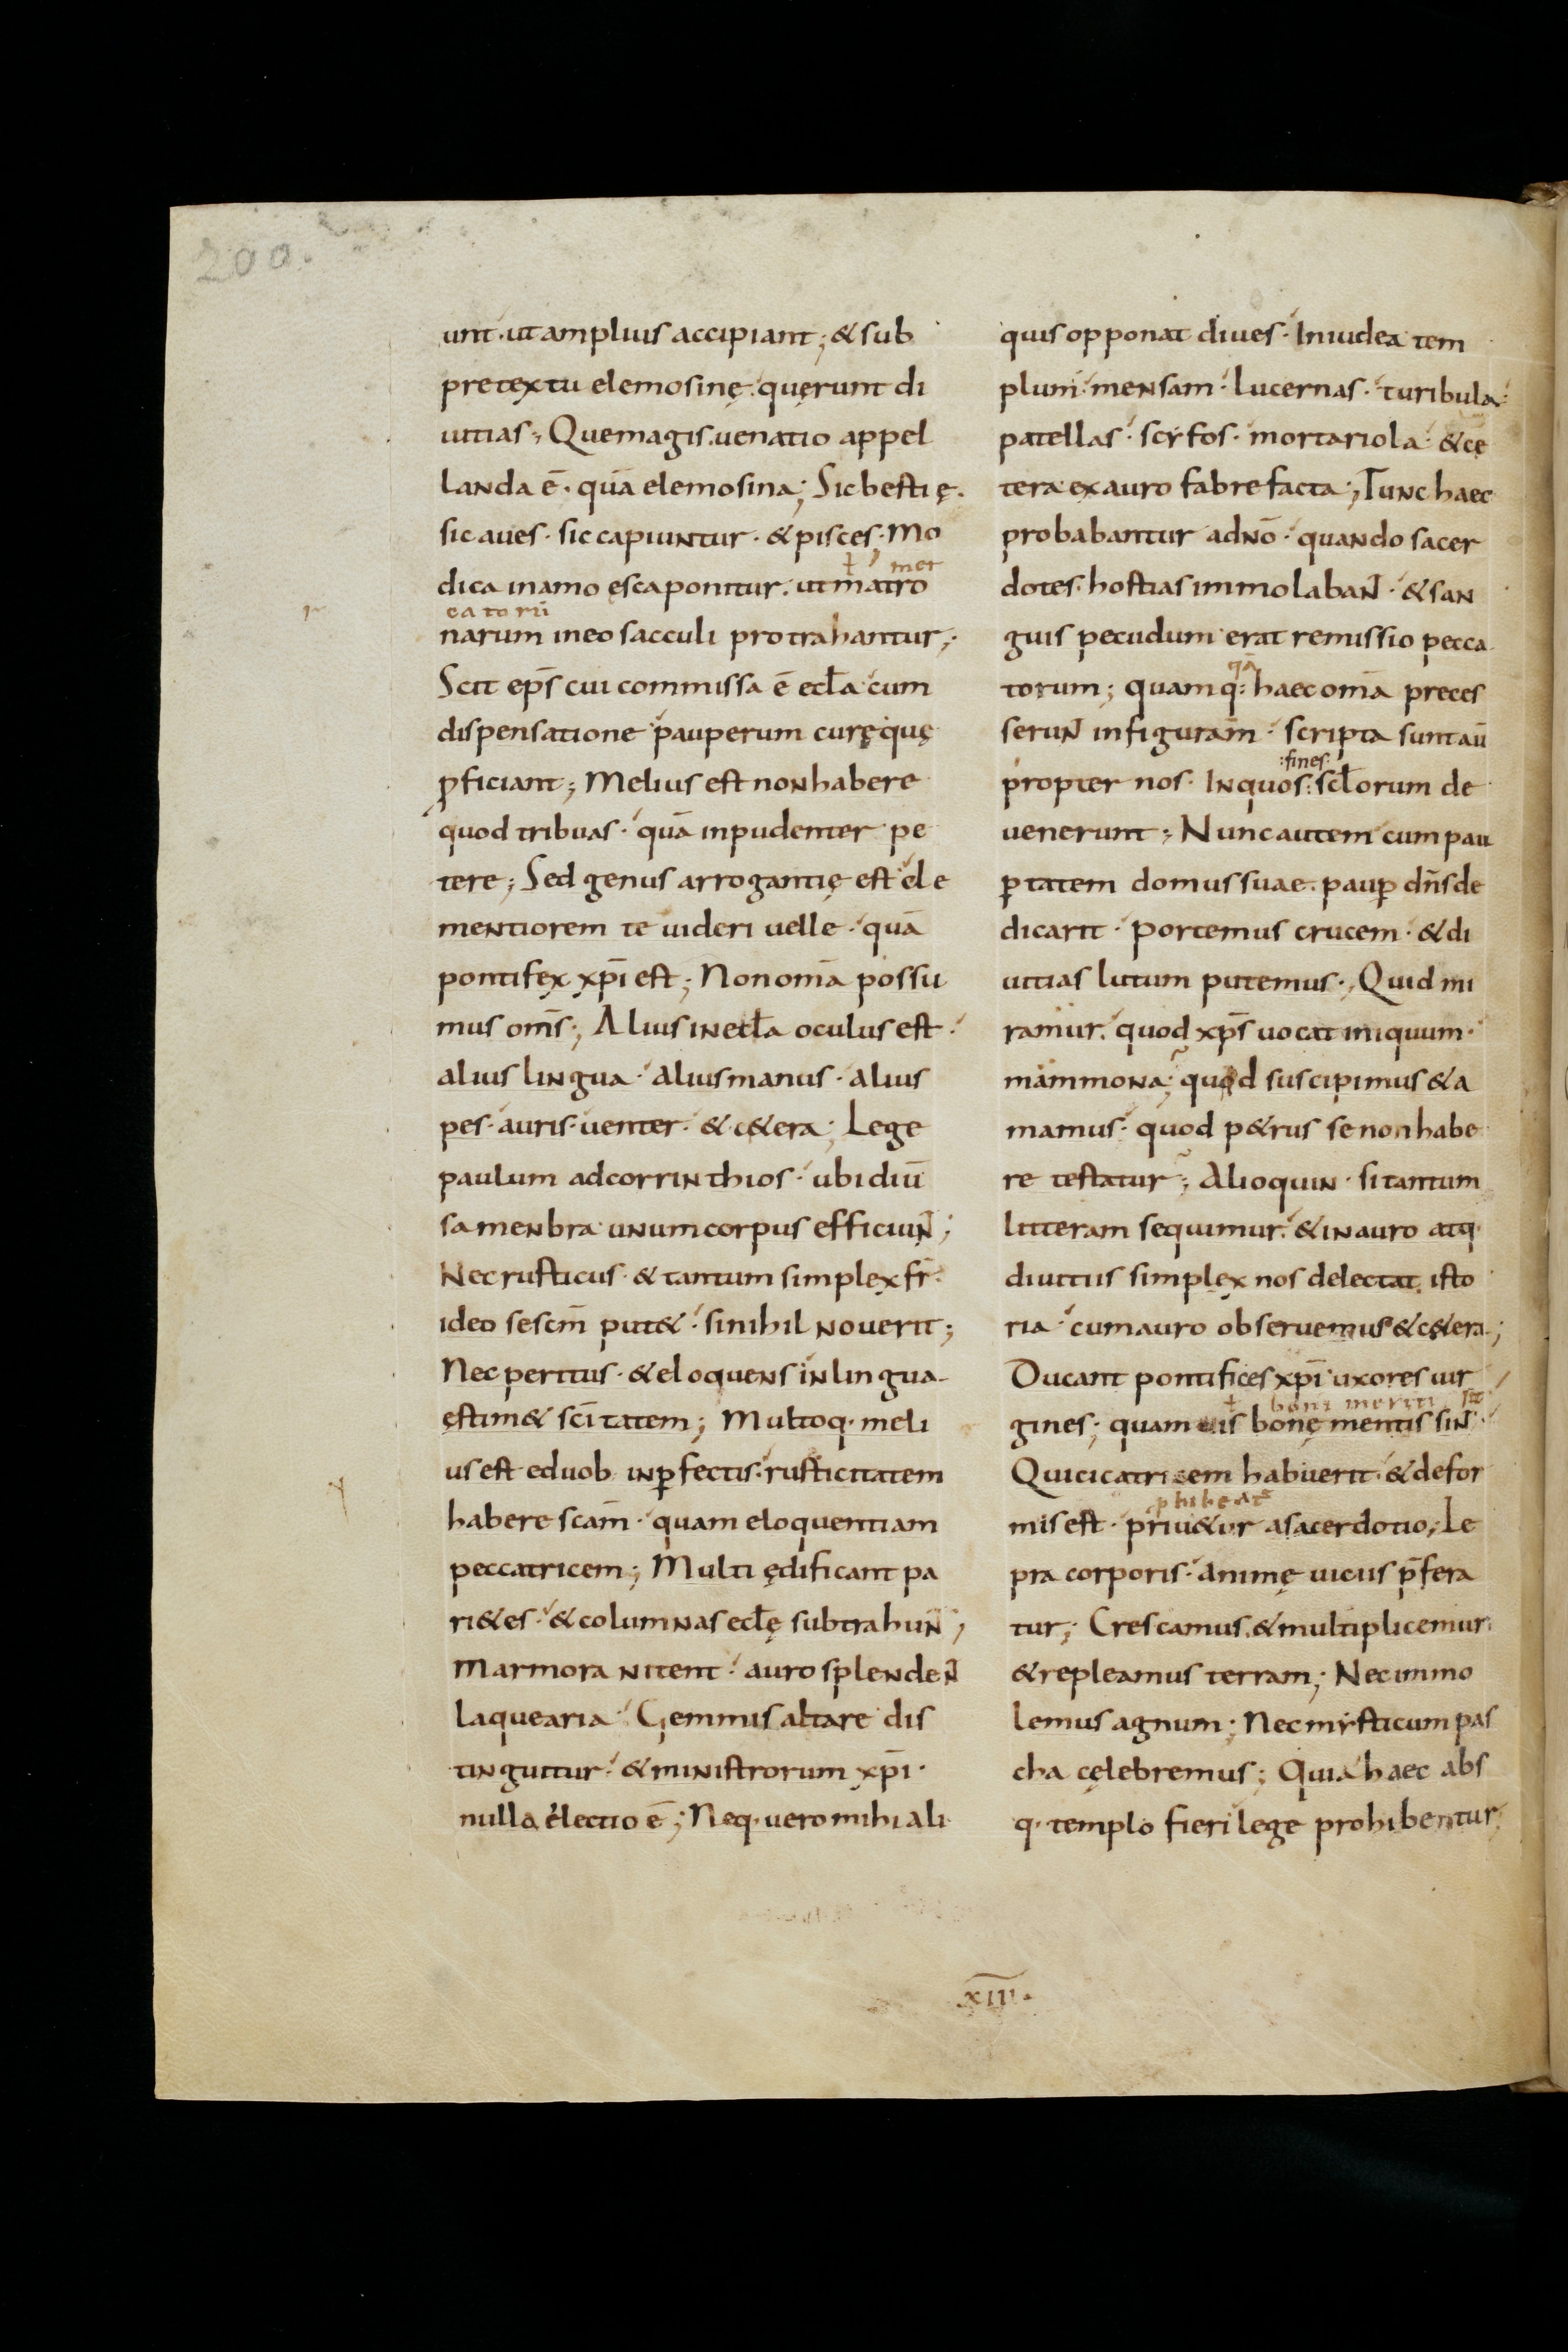 200.
unt·ut amplius accipiant; & sub
pretextu elemosinę·quęrunt di
uitias; Quemagis uenatio appel
landa ē· quā elemosina; Sic bestię·
sic aues· sic capiuntur· & pisces; Mo
ł mer
dica in amo ęsca ponitur· ut matro
catorū
narum in eo sacculi protrahantur;
Scit ep̄s cui commissa ē eccła cum
dispensatione pauperum curęquę
p̄ficiant; Melius est non habere
quod tribuas· quā inpudenter pe
tere; Sed genus arrogantię est ele
mentiorem te uideri uelle· quā
pontifex xp̄i est; Non omā possu
mus om̄s; Alius in eccła oculus est·
alius lingua· alius manus· alius
pes· auris· uenter· & c&era; Lege
paulum ad corrinthios· ubi diū
sa menbra unum corpus efficiuN̄;
Nec rusticus· & tantum simplex fr̄·
ideo se scm̄ put&· si nihil nouerit;
Nec peritus· & eloquens in lingua
ęstim& sc̄itatem; Multoq· meli
us est eduob inꝑfectis· rusticitatem
habere scam̄· quam eloquentiam
peccatricem; Multi ędificant pa
ri&es· & columnas eccłę subtrahuN̄;
Marmora nitent· auro splendeN̄
laquearia· Gemmis altare dis
tinguitur· & ministrorum xp̄i·
nulla electio ē; Neq· uero mihi ali
quis opponat diues· In iudea tem
plum· mensam· lucernas· turibula·
patellas· scẏfos· mortariola· & cę
tera ex auro fabre facta; Tunc haec
probabantur a dn̄o· quando sacer
dotes hostias immolabaN̄· & san
guis pecudum erat remissio pecca
qā
torum; quamq: haec omā preces
seruN̄ in figuram̄· scripta sunt aū
:fines:
propter nos· In quos: scłorum de
uenerunt; Nunc autem cum pau
ꝑtatem domus suae· pauꝑ dn̄s de
dicarit· portemus crucem· & di
uitias lutum putemus; Quid mi
ramur· quod xp̄s uocat iniquum·
mammona; quod suscipimus & a
mamus· quod p&rus se non habe
re testatur; Alioquin· si tantum
litteram sequimur· & in auro atq·
diuitiis simplex nos delectat isto
ria· cum auro obseruemus & c&era;
Ducant pontifices xp̄i uxores uir
ł boni meriti sit
gines; quamuis bonę mentis siN̄·
Qui cicatricem habuerit· & defor
phibeat~
mis est· priu&ur a sacerdotio; Le
pra corporis· animę uiciis p̄fera
tur; Crescamus· & multiplicemur·
& repleamus terram; Nec immo
lemus agnum; Nec mẏsticum pas
cha cęlebremus; Quia haec abs
q· templo fieri lege prohibentur;
x̄īīī·